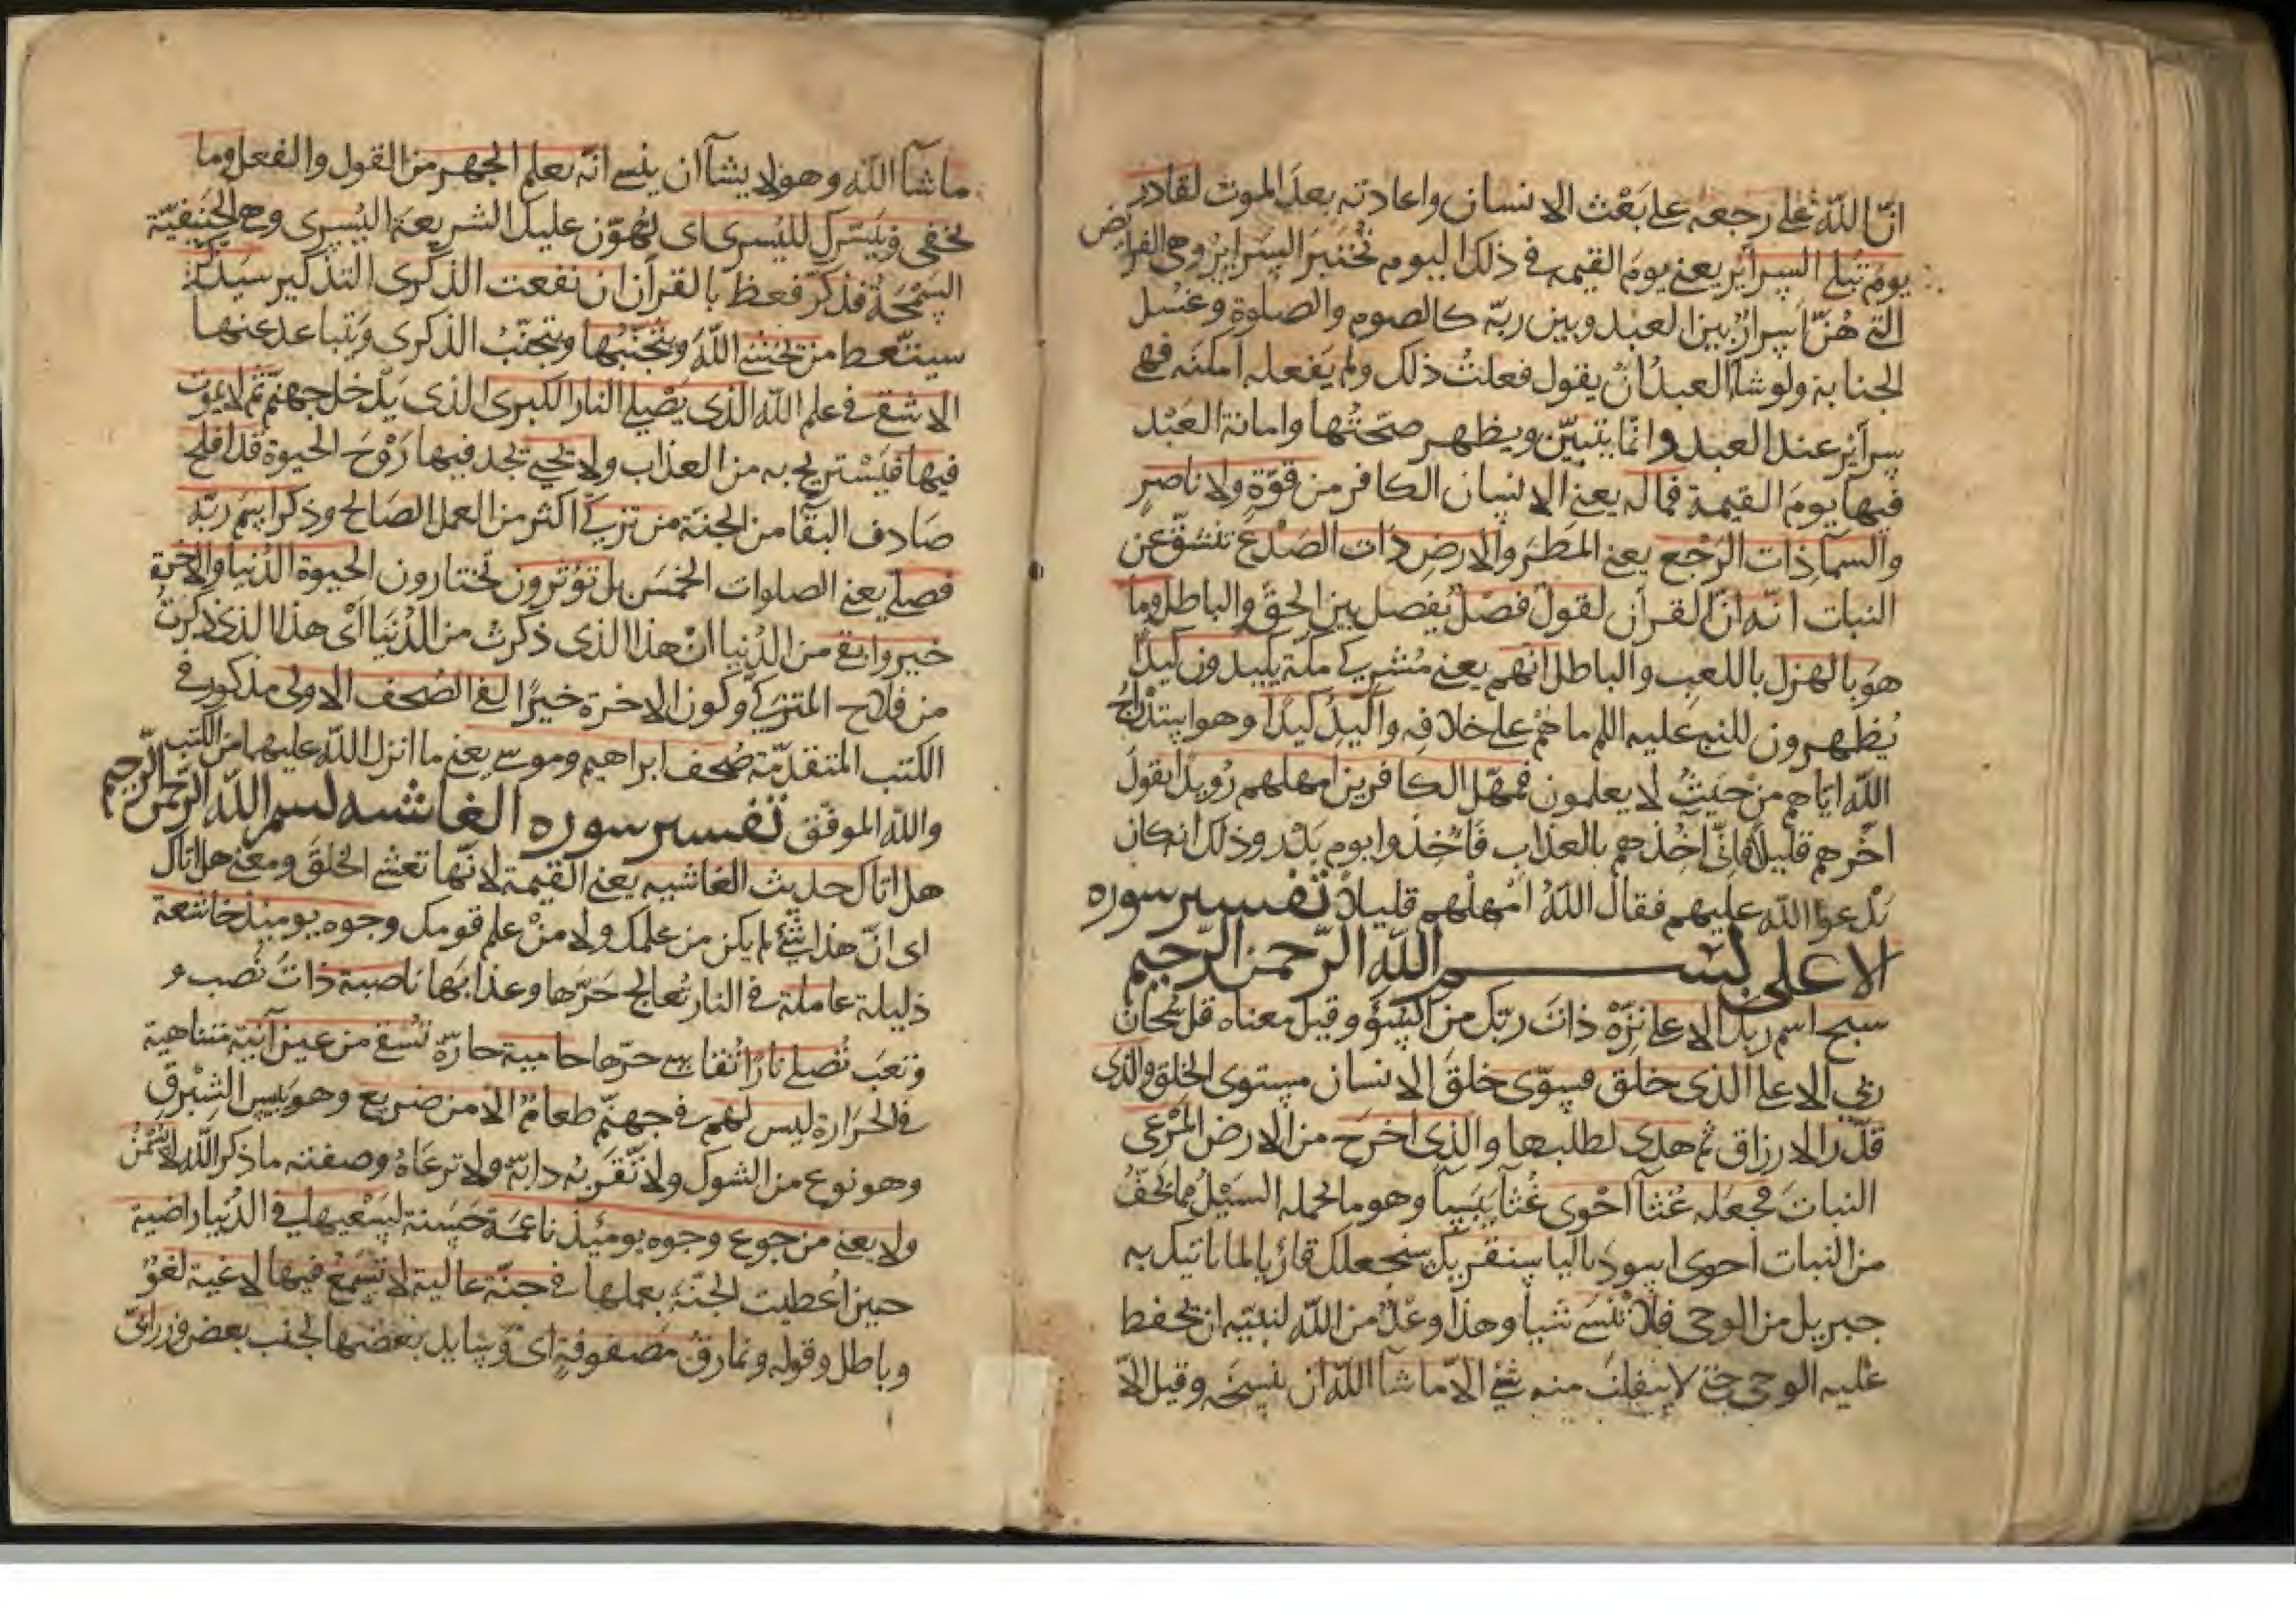 انّ الله على رجعه على بَعْث الانسان واعادته بعدَ الموت لقادر
يومَ تبلى السرآير يعنى يومَ القيمة فى ذلك اليوم تُختبر السراير وهى الفرايض
التى هُنّ اسرارٌ بين العبد وبين ربّه كالصوم والصلوة وغسل
الجنابة ولو شآ العبدُ انْ يقول فعلتُ ذلك ولم يَفعله امكنَه فهى
سرآير عند العبد وانّما يتبيّن ويظهر صحّتُها وامانة العَبْد
فيها يومَ القيمة فما له يعنى الانسان الكافر من قوّةٍ ولا ناصرٍ
والسمآ ذات الرَجْع يعنى المطر والارض ذات الصَدْع تنشقّ عن
النبات انّه انّ القرآن لقولٌ فصْلٌ يُفصل بين الحقّ والباطل وما
هوَ بالهزل باللعب والباطل انّهم يعنى مُشركى مكّة يكيدون كيدًا
يُظهرون للنبى عليه اللم ما هُمْ على خلافه واكيدُ كيدًا وهو استدراجُ
الله ايّاهم من حَيثُ لا يعلمون فمهّل الكافرين امهلهم رُويدًا يقولُ
اخّرهم قليلاً فانّى آخِذهم بالعذاب فَاُخِذوا يوم بَدْر وذلك انه كان
يَدْعوا الله عليهم فقال اللهُ امْهلْهم قليلاً تفسير سوره
الاعلى بســـم الله الرّحمن الرّحيم
سبح اسم ربك الاعلى نزّهْ ذاتَ ربّك من السُّوْء وقيل معناه قل سُبحان
ربّى الاعلى الذى خلق فسوّى خلقَ الانسان مستوى الخلق والذى
قدّر الارزاق ثم هدى لطلبها والذى اخرَج من الارض المَرْعى
النباتَ فجعَله غُثآ احْوى غُثآ يَبَساً وهو ما يحمله السَيْلُ مما يَجفُّ
من النبات احوى اسود بالياً سنقريك سنجعلك قارئا لما ياتيك به
جبريل من الوحى فلا تَنْسَى شيا وهذا وعْدٌ من الله لنبيّه ان يحفظ
عليه الوحى حتى لا ينفلت منه شئ الاّ ما شآ الله ان ينسخه وقيل الاّ
ما شآ الله وهو لا يشآ ان ينسى انّه يعلم الجهر من القول والفعل وما
يخفى ونيَسّرك لليُسرى اى نُهوّن عليك الشريعة اليُسرى وهى الحَنيفيّة
السَّمْحَةُ فذكّر فعظ بالقرآن ان نفعت الذكرى التذكير سيذكّر
سيتّعط من يخشى اللهَ ويتجنّبُها ويتجنّبُ الذكرى ويَتباعد عنها
الاشقى فى علم الله الذى يَصْلى النار الكبرى الذى يَدْخل جهنّم ثم لا يموت
فيها فيَسْتريح به من العذاب ولا يحيى يجد فيها رَوْحَ الحيوة قد افلح
صَادف البقآ من الجنّة من تزكّى اكثر من العمل الصَالح وذكر اسم ربّه
فصلى يعنى الصلوات الخمسَ بل تؤثرون تختارون الحيوة الدُّنيا والاخرة
خير وابقى من الدُنيا انّ هذا الذى ذكرتْ من الدُّنيا اىْ هذا الذى ذكرتُ
من فلاح المتزكى وكون الاخرة خيرًا لفى الصُحف الاولى مذكور فى
الكتب المتقدّمة صُحف ابراهيم وموسى يعنى ما انزل الله عليهما من الكتب
والله الموفّق تفسير سوره الغاشيه بسم الله الرّحمن الرّحيم
هل اتاك حديث الغاشيه يعنى القيمة لانّها تغشى الخلقَ ومعنى هل اتاك
اى انّ هذا شئ لم يكن من علمك ولا منْ علم قومك وجوه يوميذ خاشعة
ذليلة عاملة فى النار تُعالج حَرّها وعذابَها ناصبة ذاتَ نُصب و
وتعَب تُصلى نارًا تُقاسى حرّها حامية حارّة تُسقى من عين آنية متناهية
فى الحَرَارة ليس لهم فى جهنّم طعامٌ الاّ من ضريع وهو يبيس الشِبْرق
وهو نوع من الشوك ولا تَقرَبهُ دابّة ولا ترعَاهُ وصفته ما ذكر الله لا يُسْمنُ
ولا يغنى من جوع وجوه يوميذ ناعمَة حَسنة لسَعْيها فى الدُنيا راضية
حين اُعطيت الجنّة بعملها فى جنّة عالية لا تَسْمعُ فيها لاغية لغوٌ
وباطل وقوله ونمارق مصفوفةٍ اى وَسايد بعضها لجنب بعض وزرابىّ